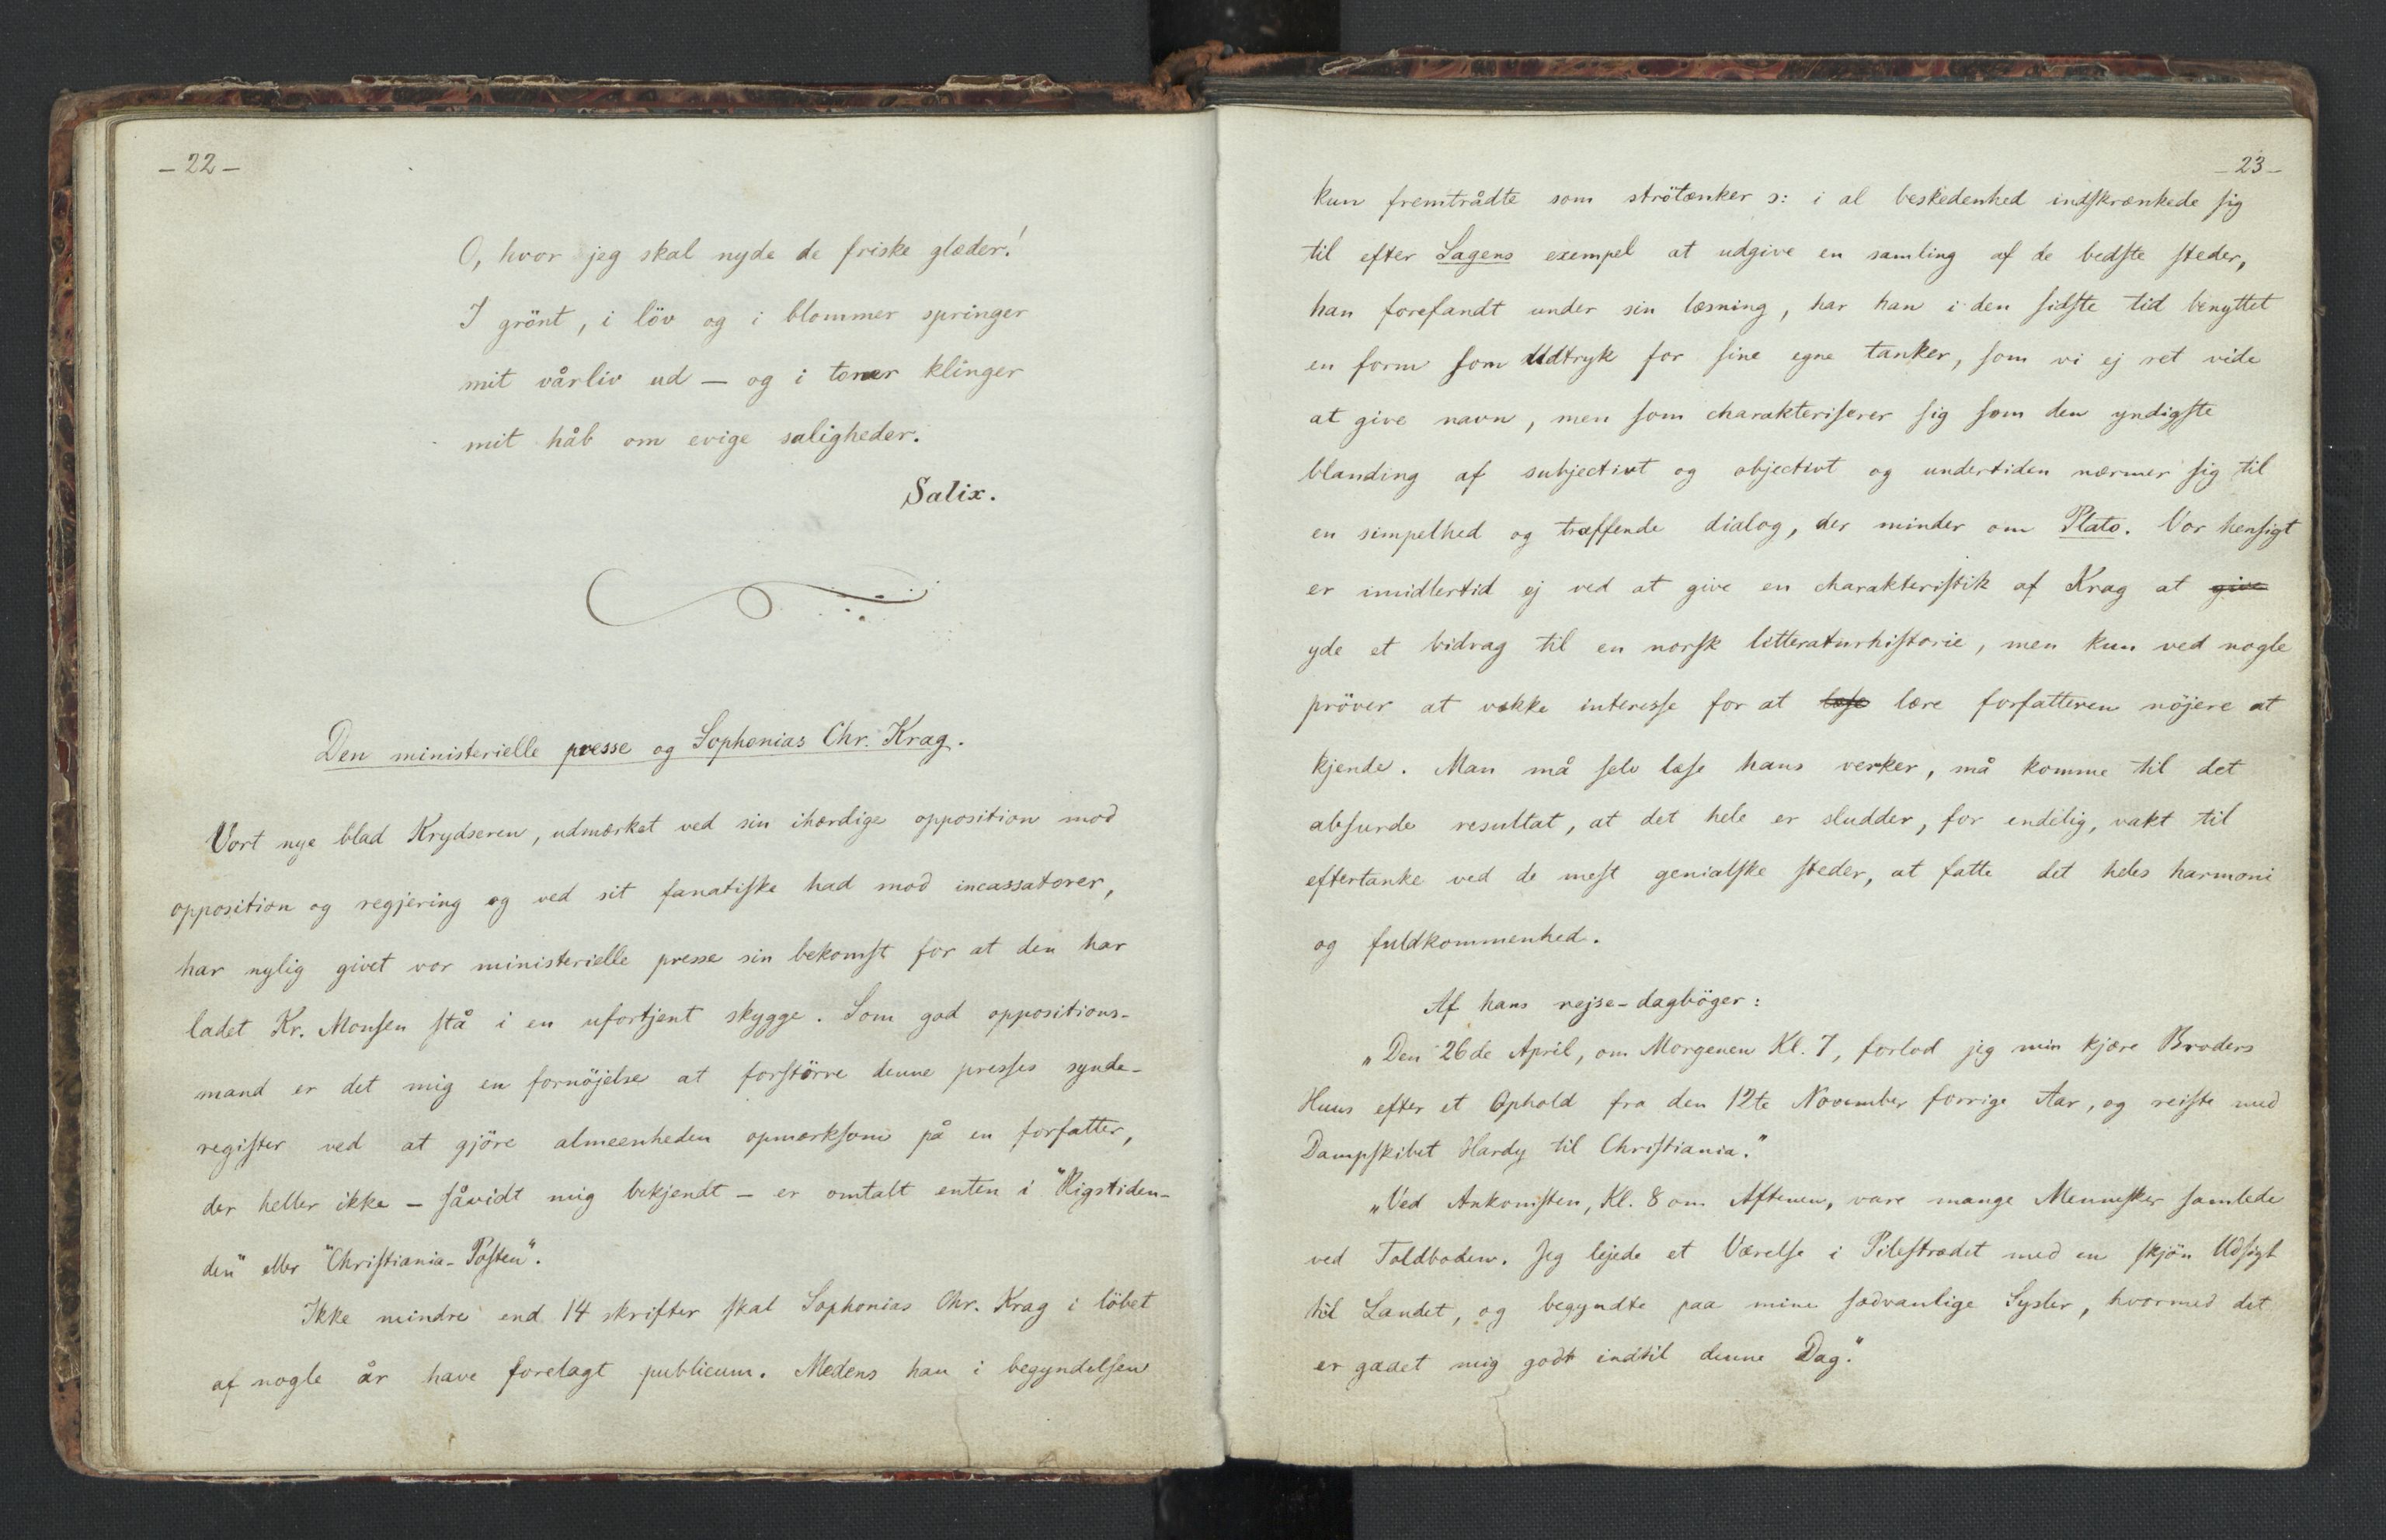 – 22 –
O, hvor jeg skal nyde de friske glæder!
I grönt, i löv og i blommer springer
mit vårliv ud – og i toner klinger
mit håb om evige saligheder.
Salix.
Den ministerielle presse og Sophonias Chr. Krag.
Vort nye blad Krydseren, udmærket ved sin ihærdige opposition mod
opposition og regjering og ved sit fanatiske had mod incassatorer,
har nylig givet vor ministerielle presse sin bekomst for at den har
ladet Kr. Monsen stå i en ufortjent skygge. Som god oppositions-
mand er det mig en fornöjelse at forstörre denne presses synde-
register ved at gjöre almeenheden opmærksom på en forfatter,
der heller ikke – såvidt mig bekjendt – er omtalt enten i "Rigstiden-
den" eller "Christiania-Posten".
Ikke mindre end 14 skrifter skal Sophonias Chr. Krag i löbet
af nogle år have forelagt publicum. Medens han i begyndelsen
– 23 –
kun fremtrådte som strötænker ɔ: i al beskedenhed indskrænkede sig
til efter Sagens exempel at udgive en samling af de bedste steder,
han forefandt under sin læsning, har han i den sidste tid benyttet
en form som Udtryk for sine egne tanker, som vi ej ret vide
at give navn, men som charakteriserer sig som den yndigste
blanding af subjectivt og objectivt og undertiden nærmer sig til
en simpelhed og træffende dialog, der minder om Plato. Vor hensigt
er imidlertid ej ved at give en charakteristik af Krag at give
yde et bidrag til en norsk litteraturhistorie, men kun ved nogle
pröver at vække interesse for at læse lære forfatteren nöjere at
kjende. Man må selv læse hans verker, må komme til det
absurde resultat, at det hele er sludder, for endelig, vakt til
eftertanke ved de mest genialske steder, at fatte det heles harmoni
og fuldkommenhed.
Af hans rejse-dagböger:
„Den 26de April, om Morgenen Kl. 7, forlod jeg min kjære Broders
Huus efter et Ophold fra den 12te November forrige Aar, og reiste med
Dampskibet Hardy til Christiania."
„Ved Ankomsten, Kl. 8 om Aftenen, vare mange Mennesker samlede
ved Toldboden. Jeg lejede et Værelse i Pilestrædet med en skjön Udsigt
til Landet, og begyndte paa mine sædvanlige Sysler, hvormed det
er gaaet mig godt indtil denne Dag."